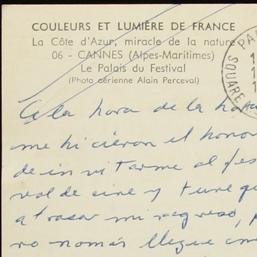 COULEURS ET LUMIÈRE DE FRANCE
La Côte d'Azur, miracle de la nature
06 - CANNES (Alpes-Maritimes)
Le Palais du Festival
(Photo aérienne Alain Perceval)
PA
SQUARE
A la hora de la hora
me hicieron el honor
de invitarme al fes
val de cine y tuve que
atrasar mi regreso, p
no nomás llegue